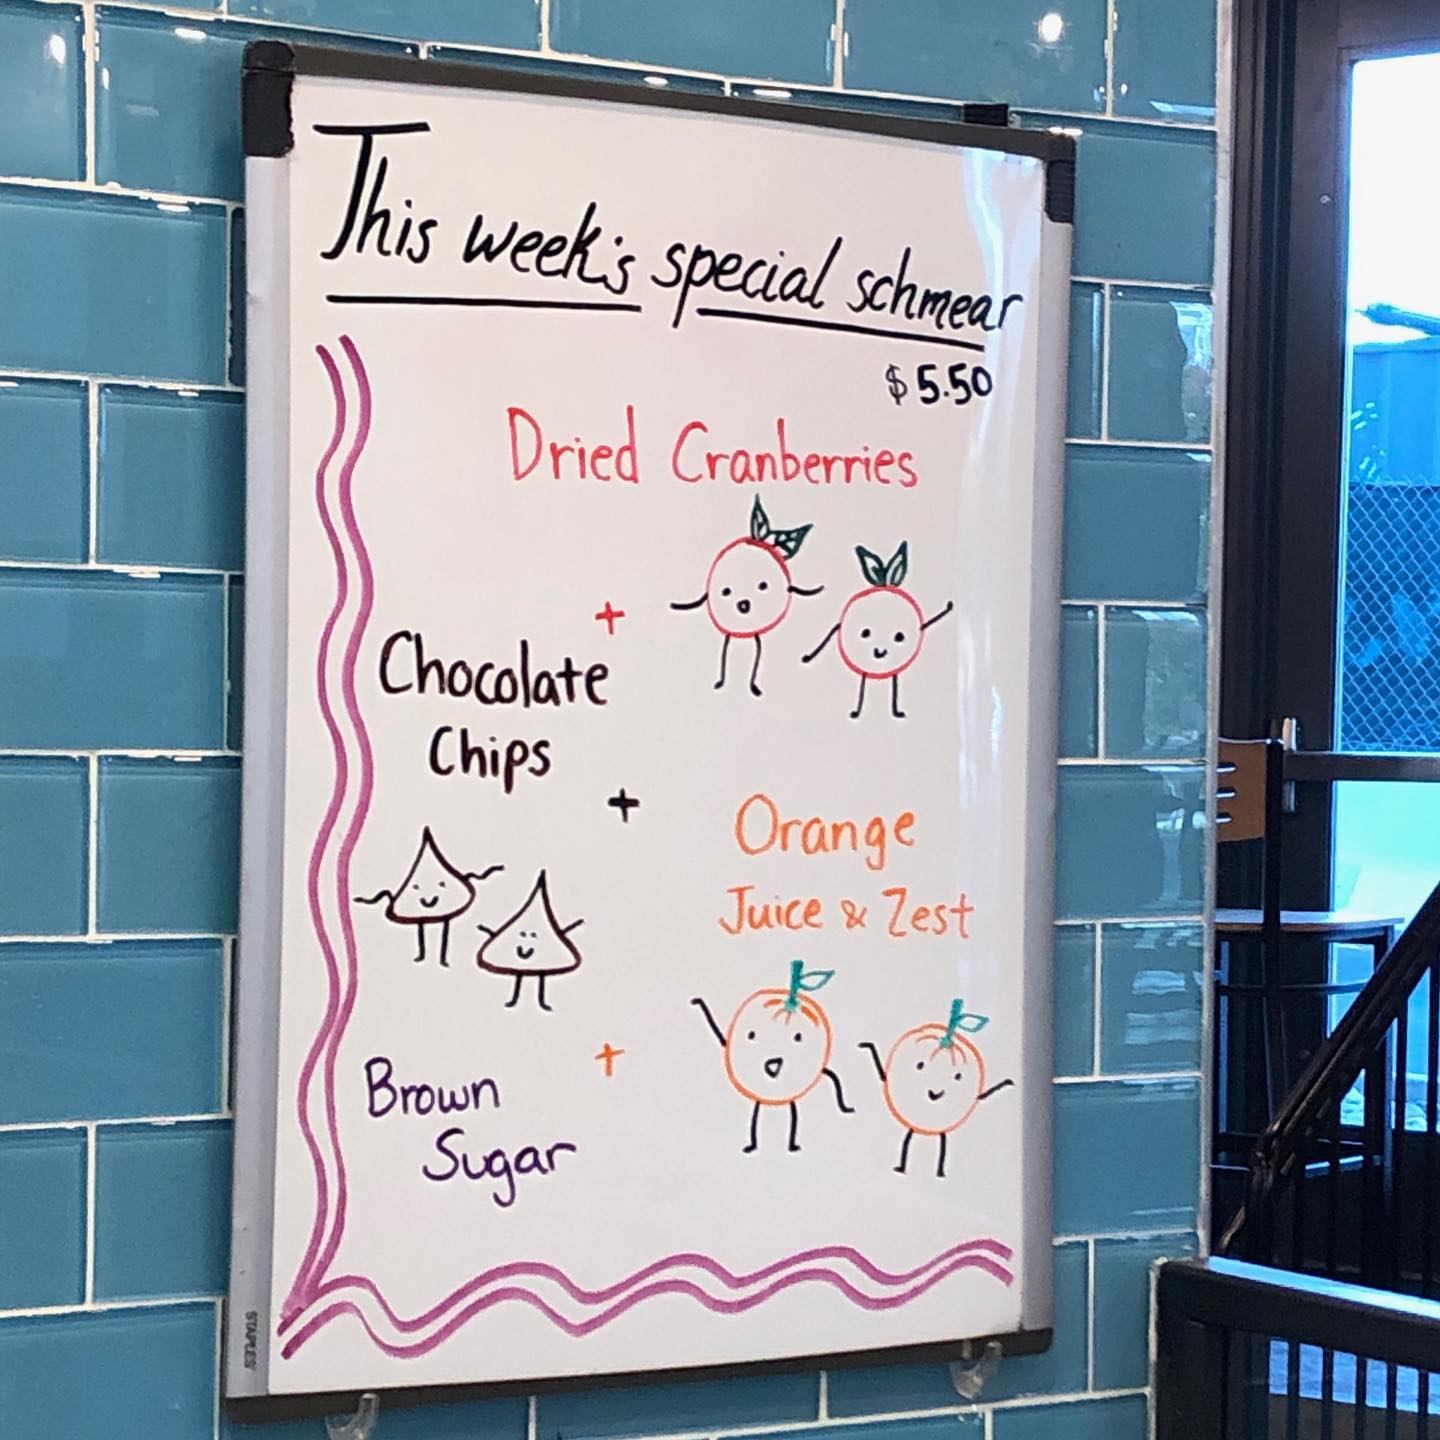 This week's special schmear
$5.50
Dried Cranberries
+
Chocolate
Chips
+
Orange
Juice & Zest
+
Brown
Sugar
STAPLES